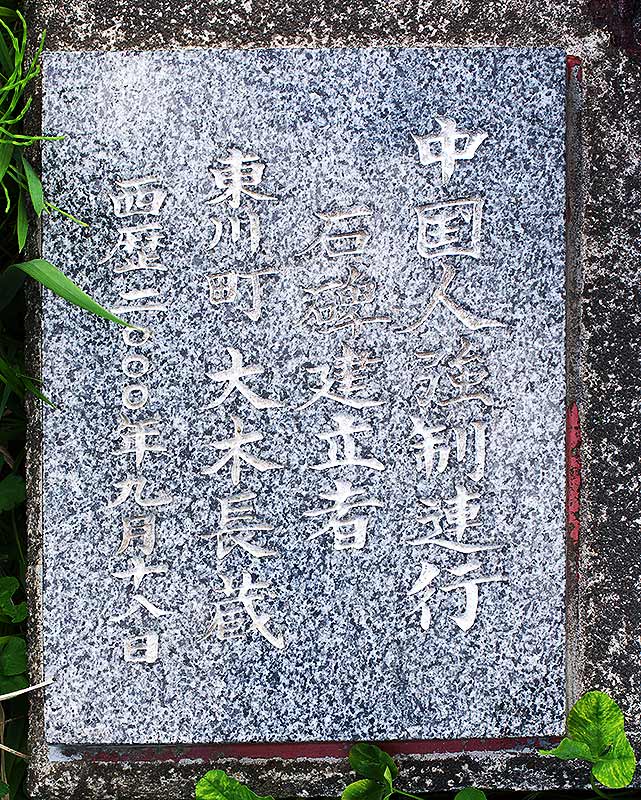 中国人強制連行
石碑建立者
東川町 大木長蔵
西歴二〇〇〇年九月十八日